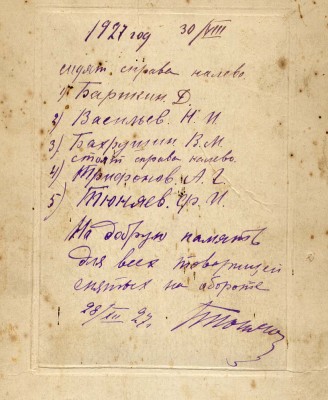 1927 год 30/VIII
сидят справа налево.
1) Баржкин. Д.
2) Васильев. Н И
3) Бахрушин В.М.
стоят справа налево.
4) Трифонов. А. Г.
5) Тюняев. Ф. И.
На добрую память
для всех товарищей
снятых на обороте
28/XII 27 г.